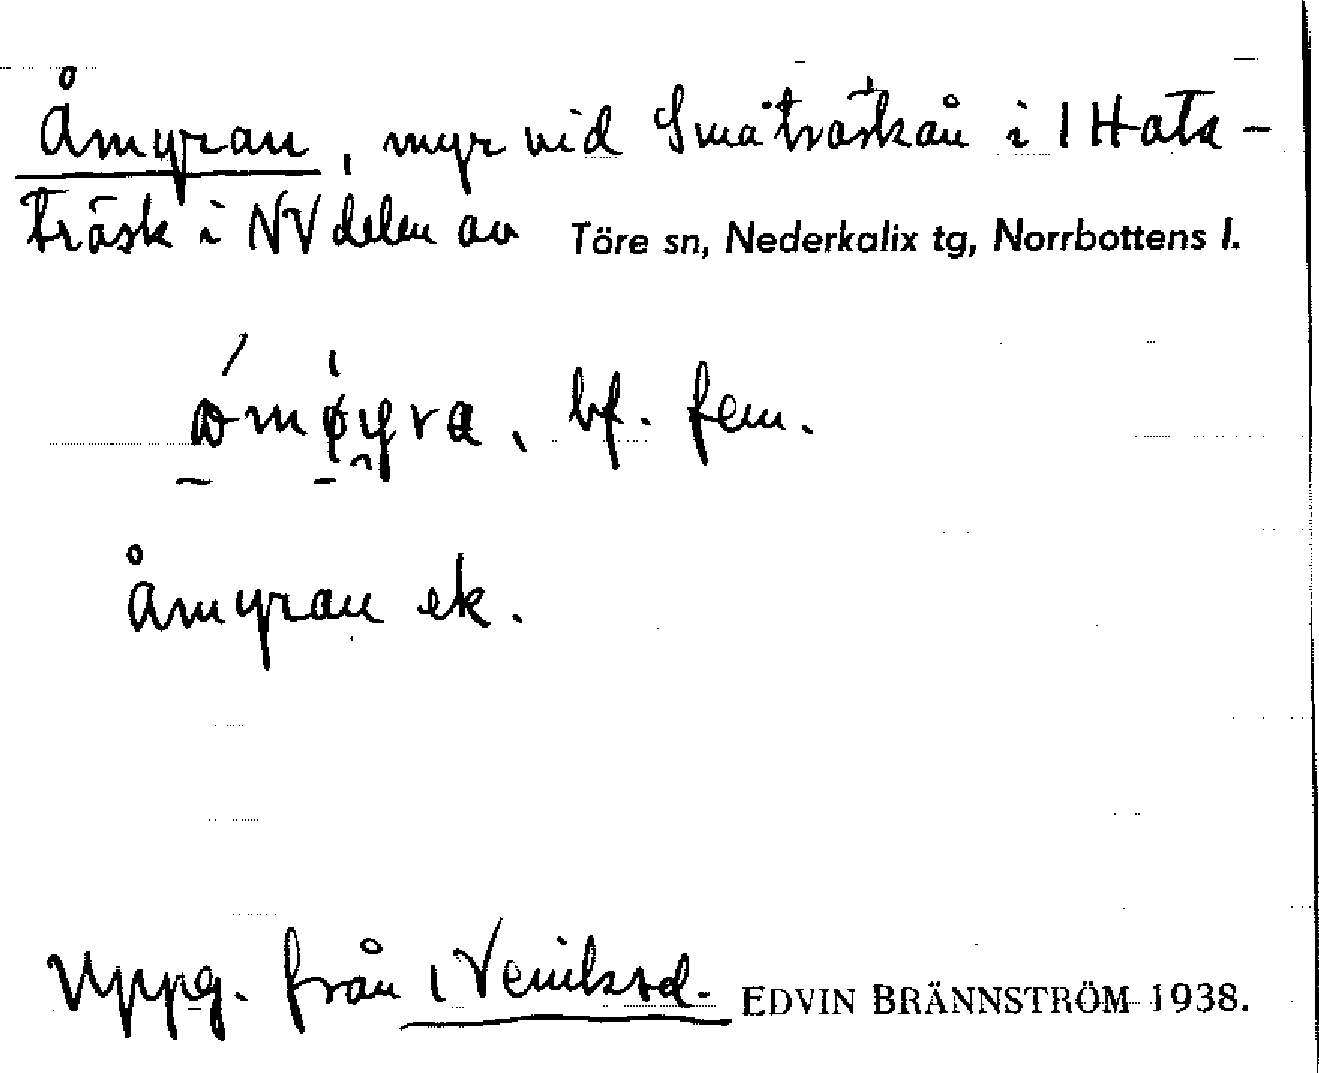 Åmyran, myr vid Småträskån i 1 Hata-
träsk i NV delen av Töre sn, Nederkalix tg, Norrbottens l.
bf. fem.
Åmyran ek.
Uppg. från 1 EDVIN BRÄNNSTRÖM 1938.